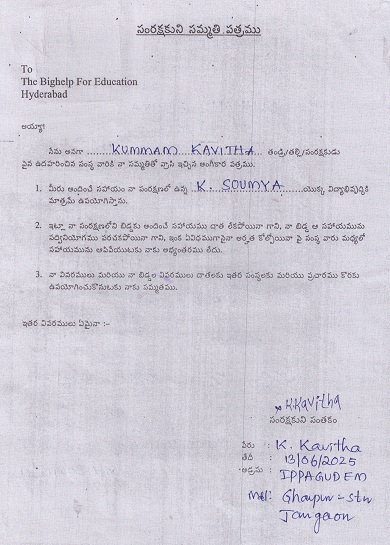 సంరక్షకుని సమ్మతి పత్రము
To
The Bighelp For Education
Hyderabad
అయ్యా!
నేను అనగా ........KUMMAM KAVITHA........ తండ్రి/తల్లి/సంరక్షకుడు
పైన ఉదహరించిన సంస్థ వారికి నా సమ్మతితో వ్రాసి ఇచ్చిన అంగీకార పత్రము.
1. మీరు అందించే సహాయం నా సంరక్షణలో ఉన్న ...K. SOUMYA........యొక్క విద్యాభివృద్ధికి
మాత్రమే ఉపయోగిస్తాను.
2. ఇట్లా నా సంరక్షణలోని బిడ్డకు అందించే సహాయము దాత లేకపోయినా గాని, నా బిడ్డ ఆ సహాయమును
సద్వినియోగము పరచకపోయినా గాని, ఇంక ఏవిధముగానైనా అర్హత కోల్పోయినా పై సంస్థ వారు మధ్యలో
సహాయమును ఆపివేయుటకు నాకు అభ్యంతరము లేదు.
3. నా వివరములు మరియు నా బిడ్డల వివరములు దాతలకు ఇతర సంస్థలకు మరియు ప్రచారము కొరకు
ఉపయోగించుకొనుటకు నాకు సమ్మతము.
ఇతర వివరములు ఏమైనా :-
K.Kavitha
సంరక్షకుని సంతకం
పేరు : K. Kavitha
తేది : 13/06/2025
అడ్రసు : IPPAGUDEM
Mdl: Ghanpur-stn
Jangaon